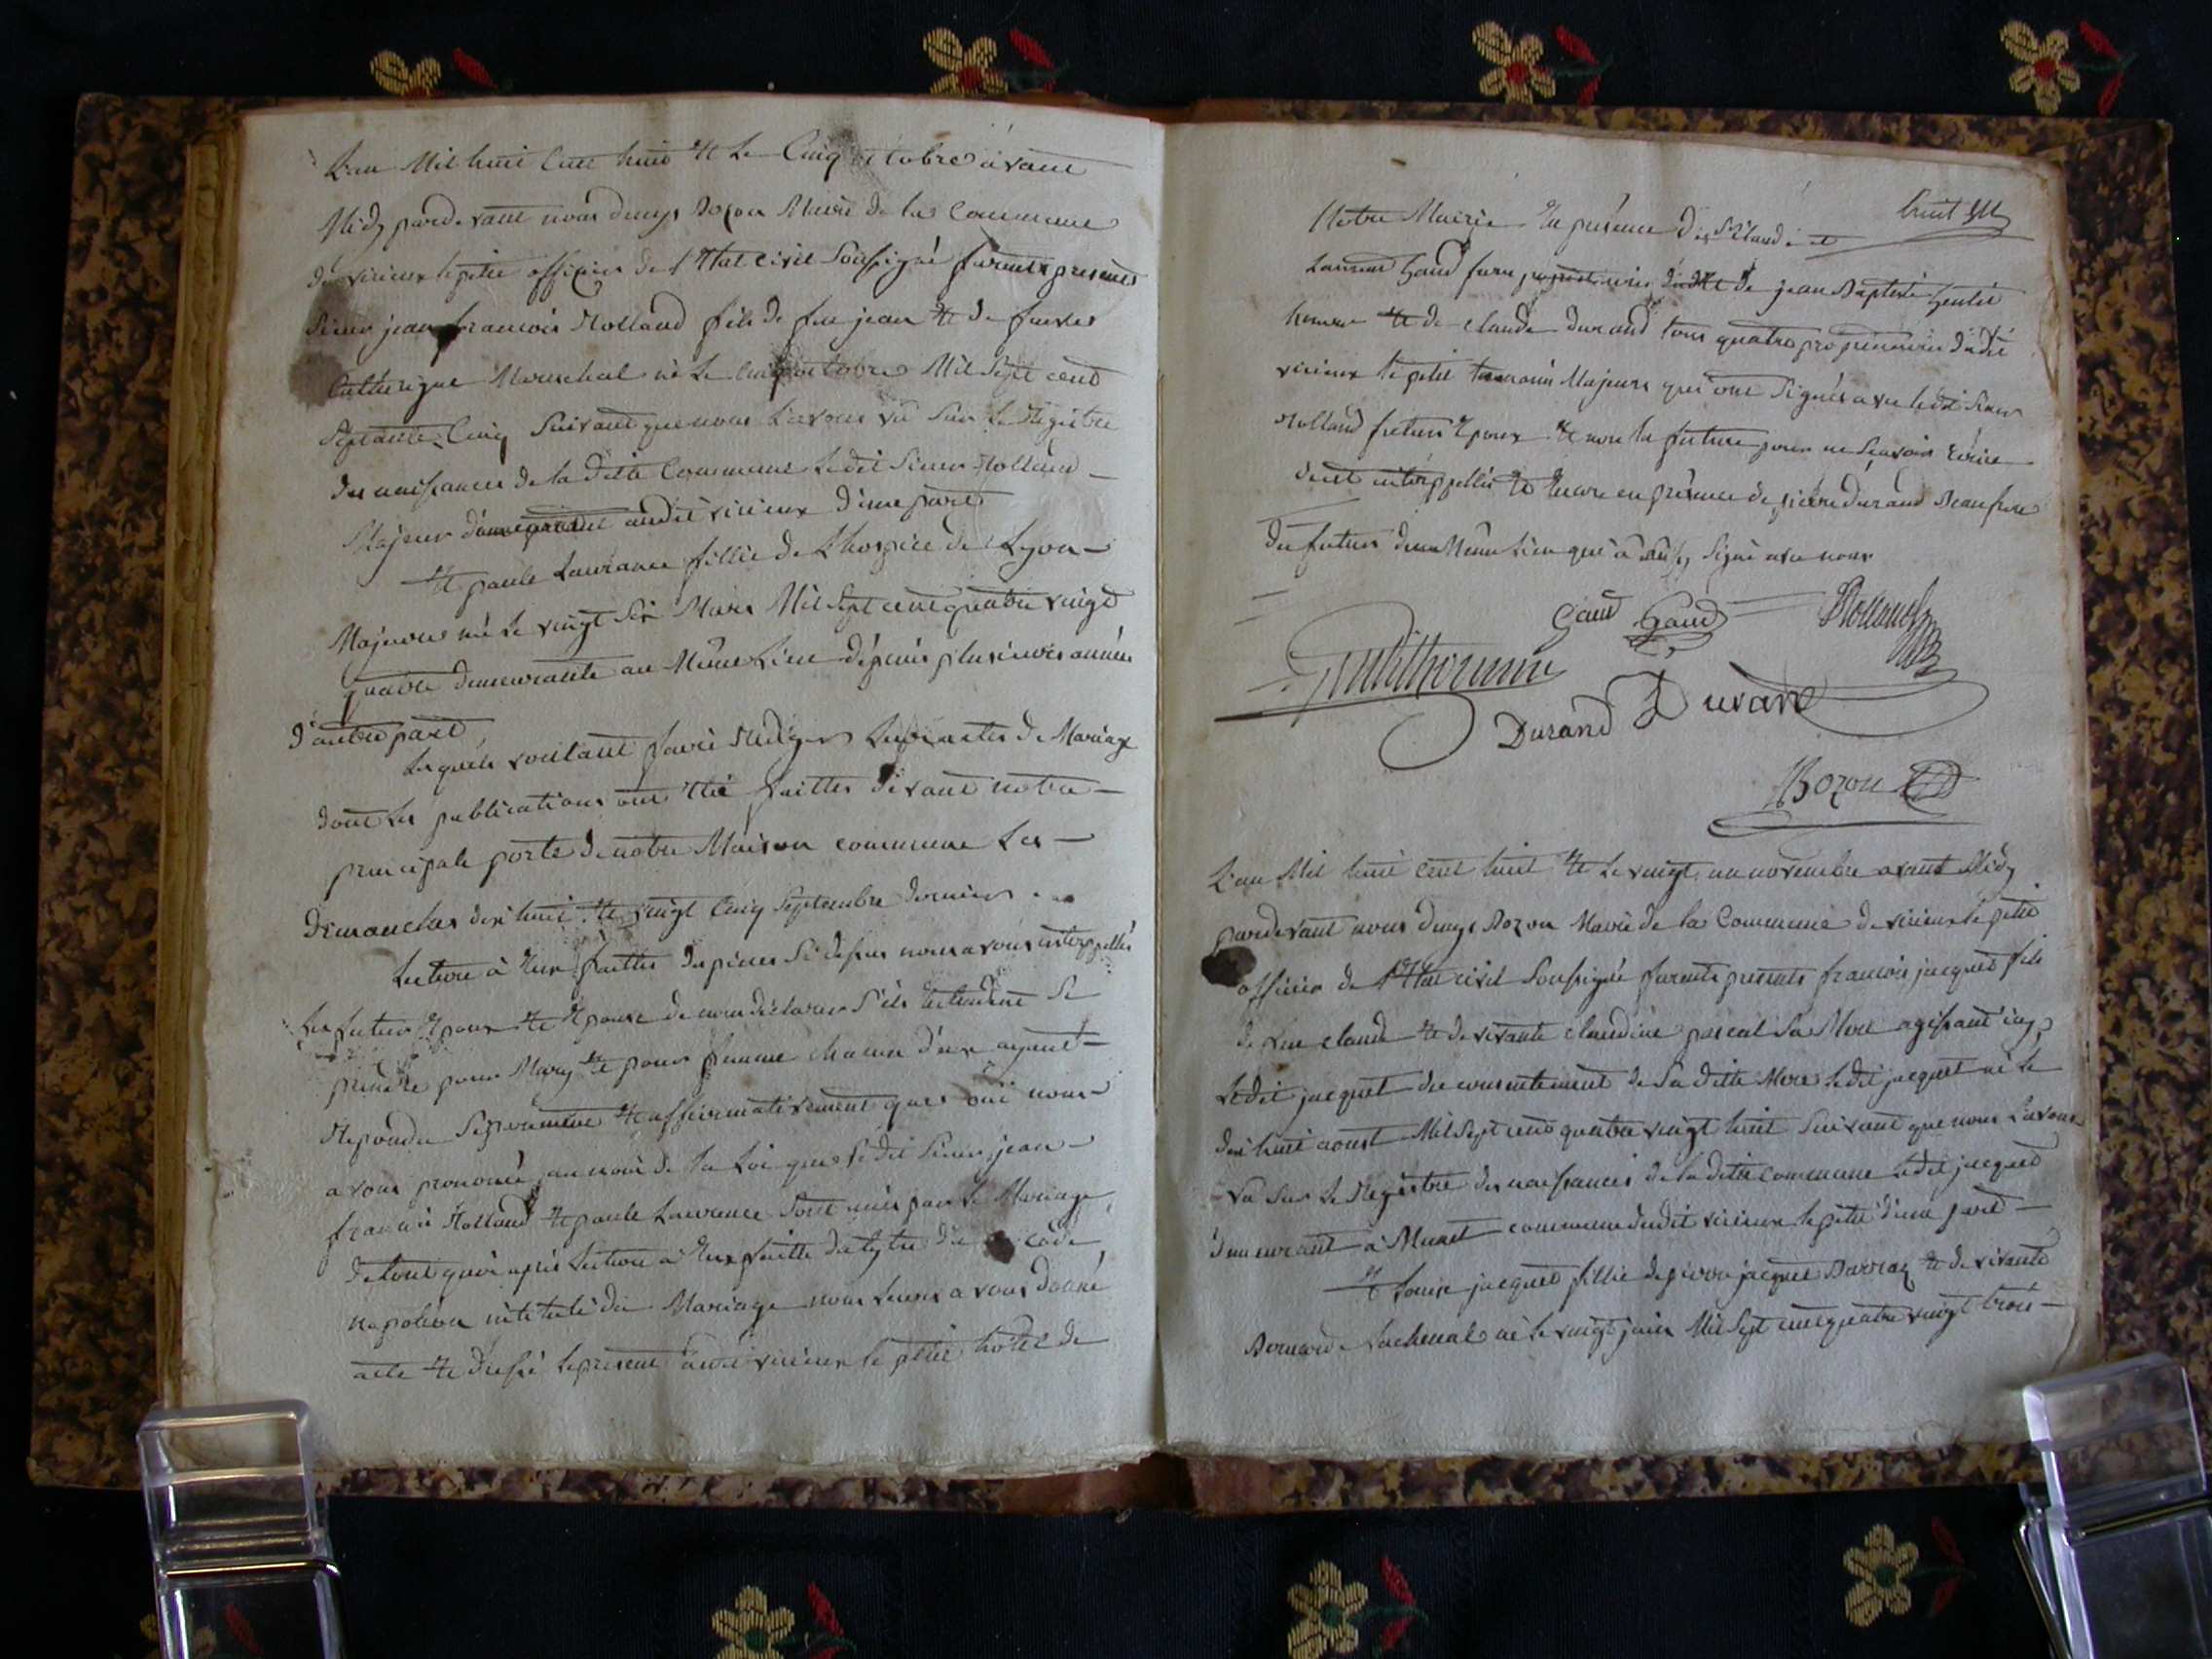 L'an Mil huit Cent huit et Le Cinq octobre avant
Midy pardevant nous denys Bozon Maire de la Commune
de virieux le petit officier de l'Etat Civil Soussigné furents presents
Sieur jean francois Rolland fils de feu jean et de feue
Catherigne Mareschal né Le Cinq octobre Mil Sept cent
Septante Cinq Suivant que nous L'avons vû Sur Le Registre
des naissances de la ditte Commune Ledit Sieur Rolland
Majeur audit virieux d'une part
et paule Laurance fillie de L'hospice de Lyon
Majeure né Le vingt Six Mars Mil Sept cent quatre vingt
quatre demeurante au Même Lieu dépuis plusieures années
d'autre part
Les quels voulant faire Rediger Leurs actes de Mariage
dont Les publications ont été faittes devant notre
principale porte de notre Maison commune Les
dimanches dix huit et vingt Cinq Septembre dernier
Lecture à Eux faittes des pieces Si dessus nous avons interppellés
Les futurs Epoux et Epouse de nous déclarer S'ils Entendent Se
prendre pour Mary et pour femme chacun d'eux ayant
Repondu Séparément et affirmativement que oui nous
avons prononcé au nom de la Loi que Ledit Sieur jean
francois Rolland et paule Laurance Sont unis par Le Mariage
de tout quoi après Lecture à Eux faitte du tytre du code
napoléon intitulé du Mariage nous Leurs avons donné
acte et dressé Le present audit virieux le petit hôtel de
huit
Notre Mairie En présence des Srs Claude et
Laurent Gaud frere de jean Baptiste Gentil
homme et de Claude durand tous quatre propriétaires dudit
virieux le petit temoins Majeurs qui ont Signés avec ledit Sieur
Rolland futur Epoux et non la future pour ne Scavoir Ecrire
de ce interppellée et Encore en présence de pierre durand Beaufrere
du futur du Même Lieu qui à aussy Signé avec nous
Gaud Gaud Rolland
Gentilhomme
Durand Durand
Bozon
L'an Mil huit Cent huit et Le vingt un novembre avant Midy
pardevant nous denys Bozon Maire de la Commune de virieux le petit
officier de l'Etat civil Soussigné furents presents francois jacquet fils
de feu claude et de vivante claudine pascal Sa Mere agissant icy
Ledit jacquet du consentement de Sa ditte Mere Ledit jacquet né Le
dix huit aoust Mil Sept cent quatre vingt huit Suivant que nous L'avons
vû Sur Le Registre des naissances de la ditte commune Ledit jacquet
demeurant à Munet commune dudit virieux le petit d'une part
et Louise jacquet fillie de pierre jacquet et de vivante
Bernarde né Le vingt juin Mil Sept cent quatre vingt trois